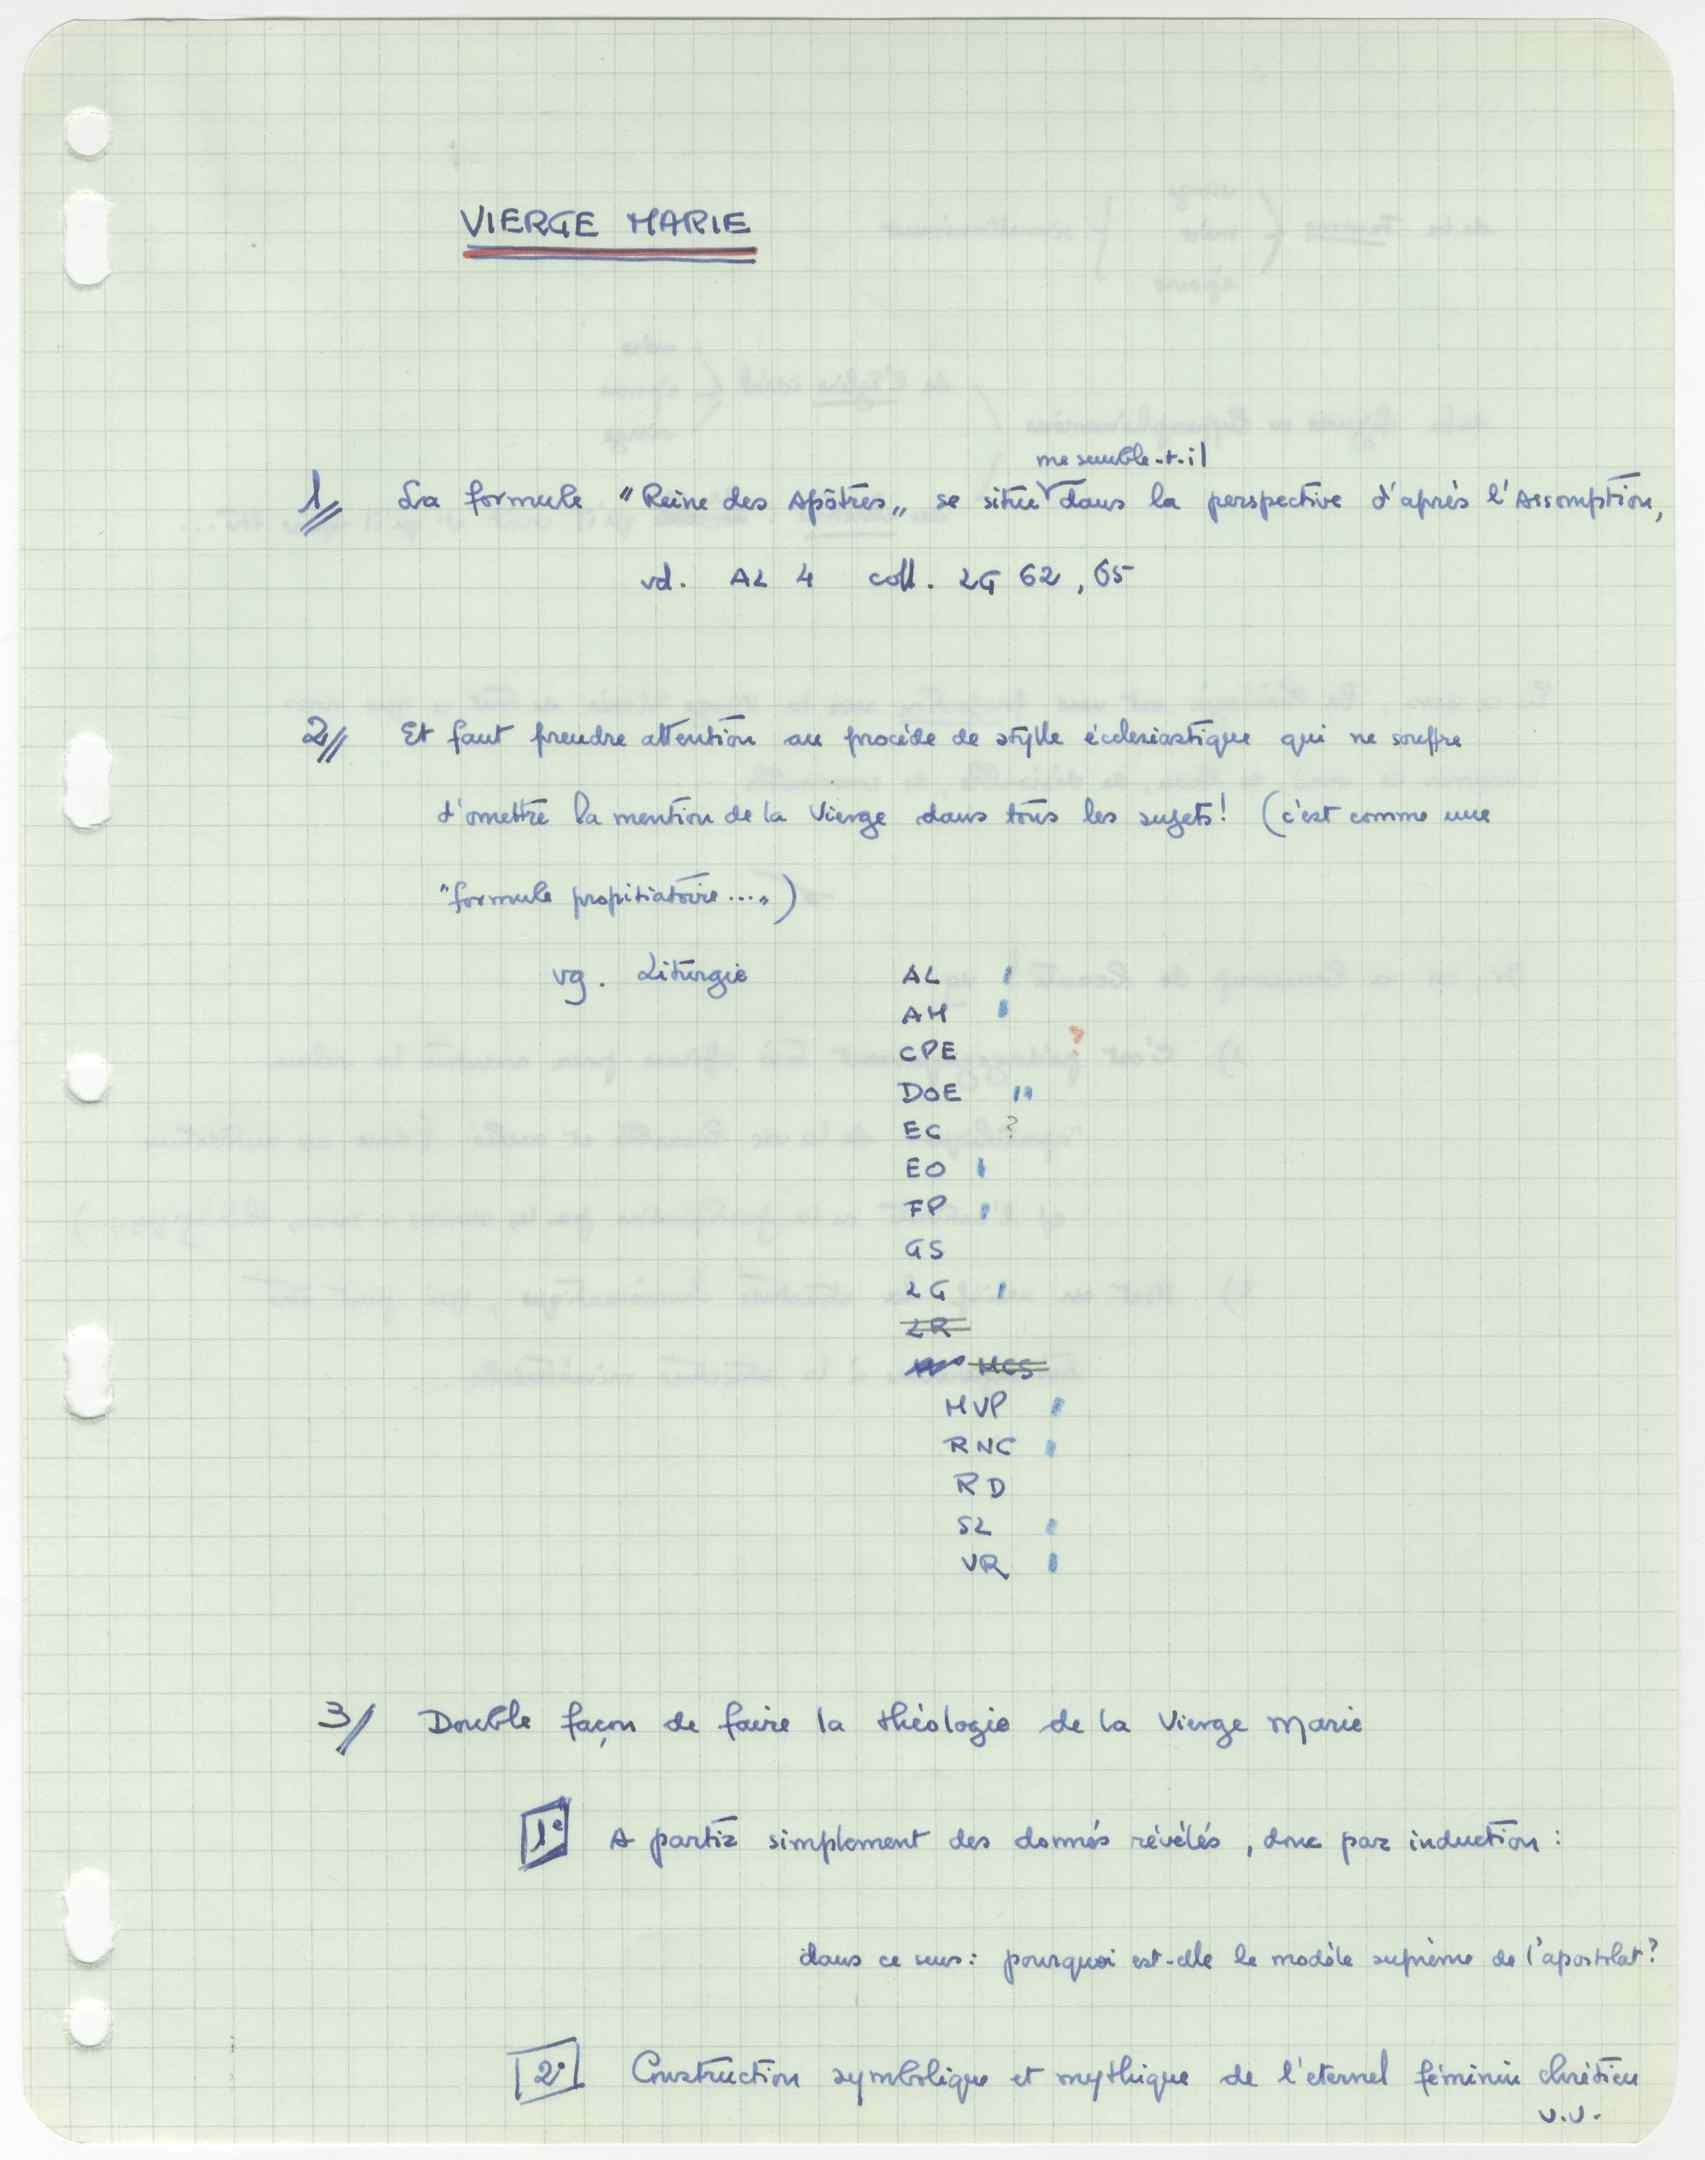 VIERGE MARIE
me semble-t-il
1// La formule "Reine des Apôtres„ se situe dans la perspective d'après l'Assomption,
vd. AL 4 coll. LG 62, 65
2// Et faut prendre attention au procéde de stylle écclesiastique qui ne souffre
d'omettre la mention de la Vierge dans tous les sujets! (c'est comme une
"formule propitiatoire...„)
vg. Liturgie AL
AM
CPE ?
DOE
EC ?
EO
FP
GS
LG
LR
MCS
MVP
RNC
RD
SL
VR
3/ Double façon de faire la théologie de la Vierge Marie
1° A partir simplement des donnés révélés, donc par induction :
dans ce sens: pourquoi est-elle le modèle suprème de l'apostolat?
2° Construction symbolique et mythique de l'eternel féminin chrétien
v.v.